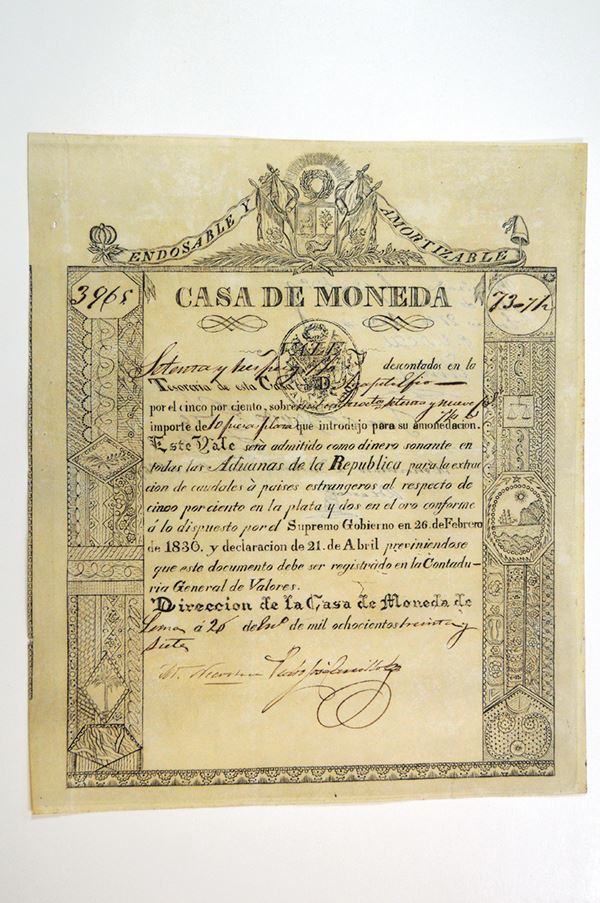 ENDOSABLE Y AMORTIZABLE
3965
CASA DE MONEDA
73-7½
VALE
descontados en la
Tesoreria de esta Casa a D.
por el cinco por ciento, sobre
importe de 10 que introdujo para su amonedacion.
Este Vale será admitido como dinero sonante en
todas las Aduanas de la Republica para la extrac
cion de caudales à paises estrangeros al respecto de
cinco por ciento en la plata y dos en el oro conforme
á lo dispuesto por el Supremo Gobierno en 26. de Febrero
de 1830. y declaracion de 21. de Abril previniendose
que este documento debe ser registrado en la Contadu-
ria General de Valores.
Direccion de la Casa de Moneda de
Lima á 26 de En.º de mil ochocientos treinta y
siete